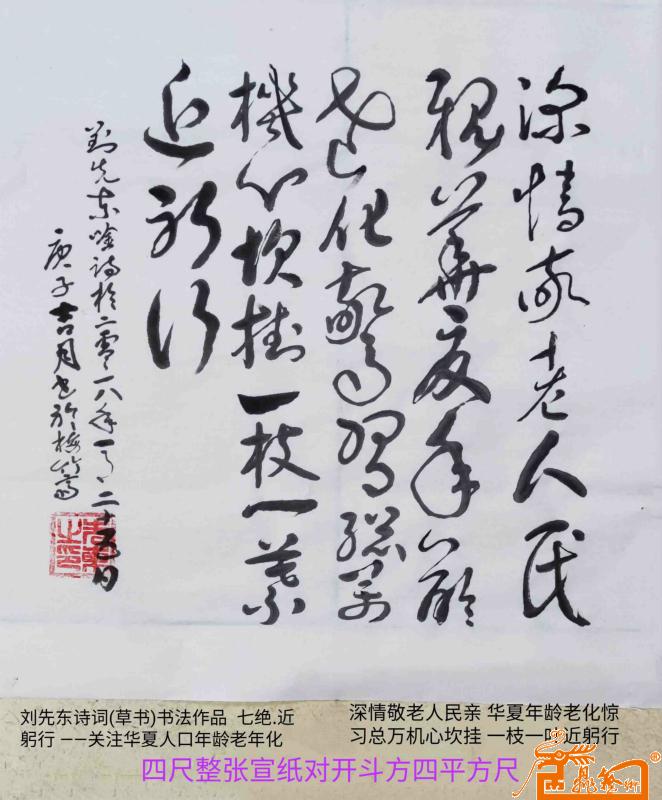 深情敬老人民
親華夏年齡
老化驚習總萬
機心坎掛一枝一葉
近躬行
劉先東吟詩於二零一八年一月二十五日
庚子吉月書於梅竹斋
刘先东诗词(草书)书法作品 七绝.近
躬行 ——关注华夏人口年龄老年化
深情敬老人民亲 华夏年龄老化惊
习总万机心坎挂 一枝一叶近躬行
四尺整张宣纸对开斗方四平方尺